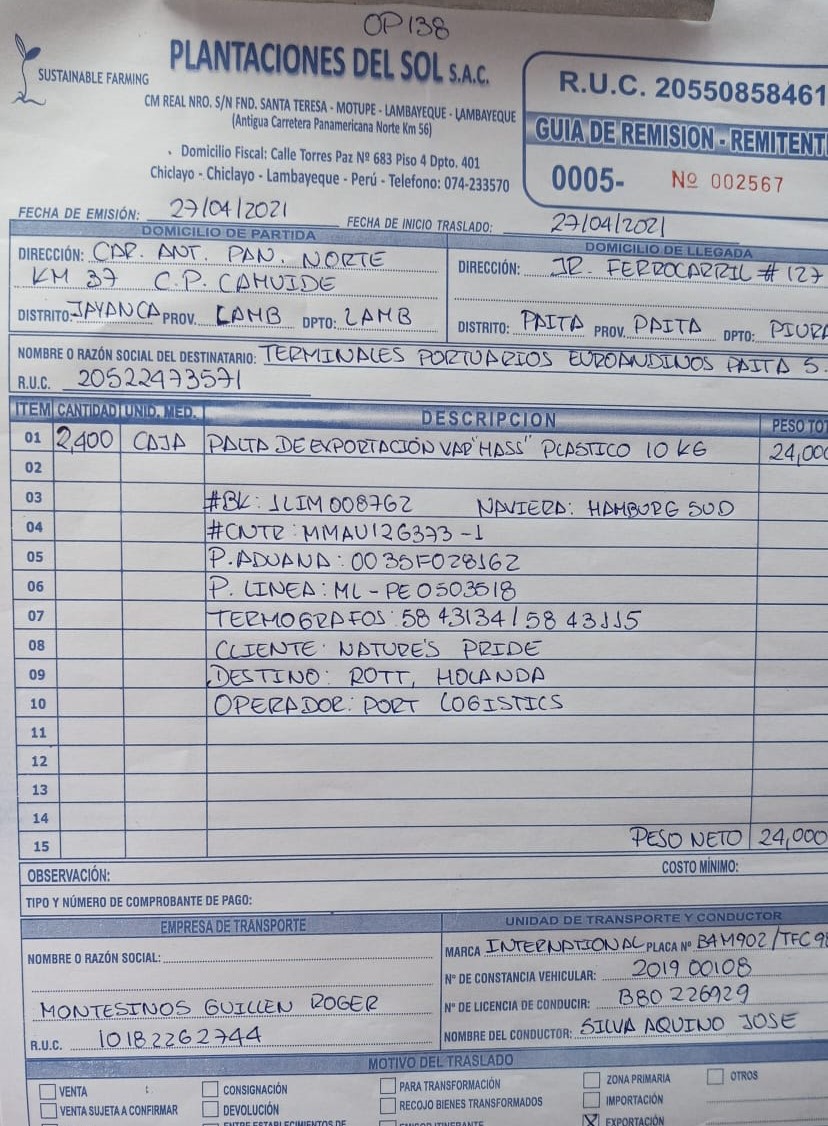 OP138
SUSTAINABLE FARMING
PLANTACIONES DEL SOL S.A.C.
CM REAL NRO. S/N FND. SANTA TERESA - MOTUPE - LAMBAYEQUE - LAMBAYEQUE
(Antigua Carretera Panamericana Norte Km 56)
Domicilio Fiscal: Calle Torres Paz Nº 683 Piso 4 Dpto. 401
Chiclayo - Chiclayo - Lambayeque - Perú - Telefono: 074-233570
R.U.C. 20550858461
GUIA DE REMISION - REMITENT
0005- Nº 002567
FECHA DE EMISIÓN: 27/04/2021 FECHA DE INICIO TRASLADO: 27/04/2021
DOMICILIO DE PARTIDA
DIRECCIÓN: CAR. ANT. PAN. NORTE
KM 37 C.P. CAHUIDE
DISTRITO: JAYANCA PROV. LAMB DPTO: LAMB
DOMICILIO DE LLEGADA
DIRECCIÓN: JR. FERROCARRIL # 127
DISTRITO: PAITA PROV. PAITA DPTO: PIURA
NOMBRE O RAZÓN SOCIAL DEL DESTINATARIO: TERMINALES PORTUARIOS EUROANDINOS PAITA S.
R.U.C. 20522473571
ITEM CANTIDAD UNID. MED. DESCRIPCION PESO TOT
01 2,400 CAJA PALTA DE EXPORTACIÓN VAR "HASS" PLASTICO 10 KG 24,000
02
03 #BK: 1LIM008762 NAVIERA: HAMBURG SUD
04 #CNTR: MMAU126373-1
05 P. ADUANA: 0035F028162
06 P. LINEA: ML-PE0503518
07 TERMOGRAFOS: 5843134 / 5843115
08 CLIENTE: NATURE'S PRIDE
09 DESTINO: ROTT, HOLANDA
10 OPERADOR: PORT LOGISTICS
11
12
13
14
15 PESO NETO 24,000
OBSERVACIÓN: COSTO MÍNIMO:
TIPO Y NÚMERO DE COMPROBANTE DE PAGO:
EMPRESA DE TRANSPORTE
NOMBRE O RAZÓN SOCIAL:
MONTESINOS GUILLEN ROGER
R.U.C. 10182262744
UNIDAD DE TRANSPORTE Y CONDUCTOR
MARCA INTERNATIONAL PLACA Nº B4M902/TFC98
Nº DE CONSTANCIA VEHICULAR: 2019 00108
Nº DE LICENCIA DE CONDUCIR: B80226929
NOMBRE DEL CONDUCTOR: SILVA AQUINO JOSE
MOTIVO DEL TRASLADO
VENTA CONSIGNACIÓN PARA TRANSFORMACIÓN ZONA PRIMARIA OTROS
VENTA SUJETA A CONFIRMAR DEVOLUCIÓN RECOJO BIENES TRANSFORMADOS IMPORTACIÓN
ENTRE ESTABLECIMIENTOS DE EMISOR ITINERANTE X EXPORTACIÓN